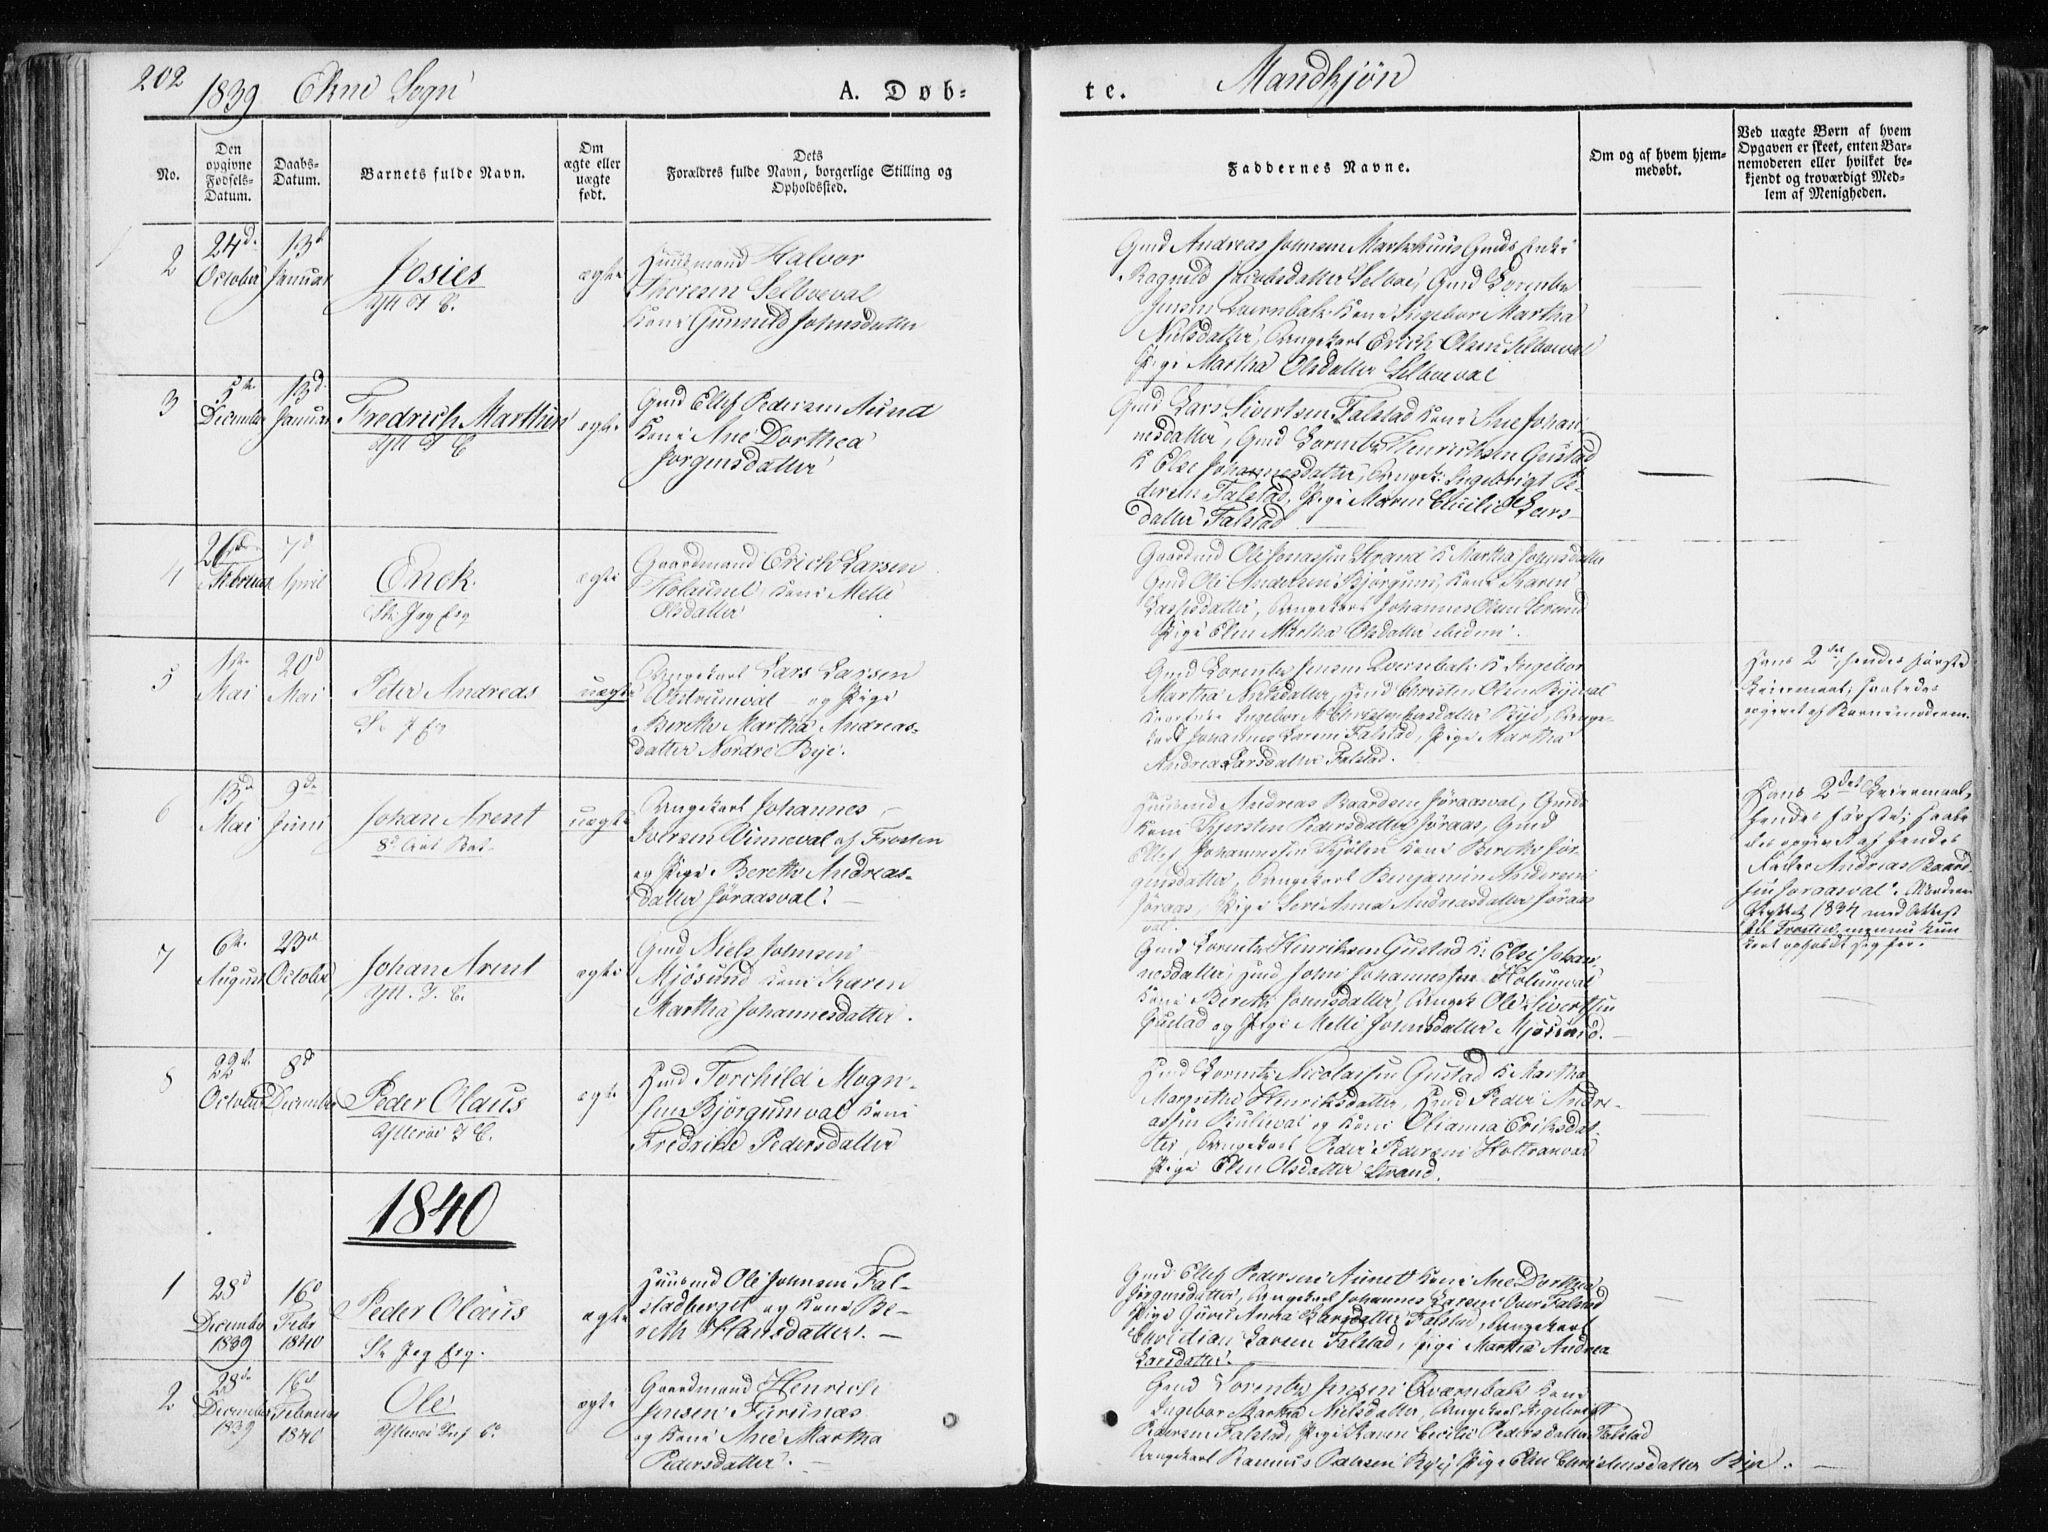 202
1839 Ekne Sogn
A. Døb-
te.
Mandkjøn
No.
Den
opgivne
Fødsels-
Datum.
Daabs-
Datum.
Barnets fulde Navn.
Om
ægte eller
uægte
født.
Dets
Forældres fulde Navn, borgerlige Stilling og
Opholdssted.
Faddernes Navne.
Om og af hvem hjem-
medøbt.
Ved uægte Børn af hvem
Opgaven er skeet, enten Bar-
nemoderen eller hvilket be-
kjendt og troværdigt Med-
lem af Menigheden.
2
24d.
October
13d
Januar
Josies
ægte
Huusmand Halvor
Thoresen Selboeval
Kone Gunnild Johnsdatter
Gmd Andreas Johnsen Markhuus Gmds Enke
Ragnild Jacobsdatter Selboe, Gmd Lorentz
Jensen Qvernbak Kone Ingebor Martha
Nielsdatter, Ungekarl Erich Olsen Selboeval
Pige Martha Olsdatter Selboeval
3
5te
December
13d.
Januar
Fredrich Marthin
ægte
Gmd Ellef Pedersen Aund
Kone Ane Dorthea
Jørgensdatter
Gmd Lars Sivertsen Falstad Kone Ane Johan-
nesdatter, Gmd Lorentz Henrichsen Gustad
K Else Johannesdatter, Ungek: Ingebrigt Pe-
dersen Falstad, Pige Maren Cicilie Lars-
datter Falstad
4
26de
Februar
7d
April
Enek.
ægte
Gaardmand Erich Larsen
Holaunet, Kone Melle
Olsdatter
Gaardmd Ole Jonassen Strand K Martha Johnsdatter
Gmd Ole Andersen Bjørgum, Kone Karen
Lassesdatter, Ungekarl Johannes Olsen Strand
Pige Elen Martha Olsdatter ibidem.
5
1ste
Mai
20d
Mai
Peter Andreas
uægte
Ungekarl Lars Larsen
Vestrumval og Pige
Berethe Martha Andreas-
datter Nordre Bye.
Gmd Lorentz Jensen Qvernbak K Ingebor
Martha Nielsdatter, Hmd Christen Olsen Byeval
Andrea Larsdatter Falstad.
Hans 2det, hendes første
Leiermaal; Saaledes
opgivet af Barnemoderen.
6
13d
Mai
9de
Juni
Johan Arent
uægte
Ungekarl Johannes
Iversen Vinneval af Frosten
og Pige Bereth Andreas-
datter Jøraasval.
Huusmd Andreas Baardsen Jøraasval, Gmds
Kone Kjersten Pedersdatter Jøraas, Gmd
Ellef Johannessen Kjølen Kone Berethe Jør-
gensdatter, Ungekarl Benjamin Andersen
Jøraas, Pige Seri Anna Andreasdatter Jøraas
val.
Hans 2det Leiermaal,
hendes første; Saale-
des opgivet af hendes
Fader Andreas Baard-
sen Jøraasval.
7
6te
August
23d
October
Johan Arent
ægte
Gmd Niels Johnsen
Mjøsund Kone Karen
Martha Johannesdatter.
Gmd Lorentz Henriksen Gustad K: Else Johan-
nesdatter, Hmd John Johannessen Holumval
Kone Bereth Jonnsdatter, Ungek Ole Sivertsen
Gustad og Pige Melli Jonsdatter Mjøsund.
8
22d.
October
8d
December
Peder Olaus
Ytterøe T C.
ægte
Hmd Torchild Mogn-
sen Bjørgumval Kone
Fredrike Pedersdatter
Hmd Lorentz Nicolaisen Gustad K Martha
Margrethe Henriksdatter, Hmd Peder Andre-
assen Buleval og Kone Olianna Eriksdat
ter, Ungekarl Peder Pedersen Holtranval
Pige Elen Olsdatter Strand.
1840
1
28d
December
1839
16d
Febr
1840
Peder Olaus
ægte
Huusmd Ole Johnsen Fal-
stadberget og Kone Be-
reth Hansdatter.
Gmd Ellef Pedersen Aunet Kone Ane Dorthea
Jørgensdatter, Ungekarl Johannes Larsen Over Falstad
Pige Guru Anna Larsdatter Falstad, Ungekarl
Christian Larsen Falstad, Pige Martha Andrea
Larsdatter.
2
28de
December
1839
16d
Februar
1840
Ole
ægte
Gaardmand Henrich
Jensen Furunæs
og Kone Ane Martha
Pedersdatter.
Gmd Lorentz Jensen Qværnbak Kone
Ingebor Martha Nielsdatter, Ungekarl Ingebrigt
Pedersen Falstad, Pige Karen Cecilie Pedersdatter Falstad
Ungekarl Rasmus Paulsen Bye, Pige Elen Christensdatter Bye.